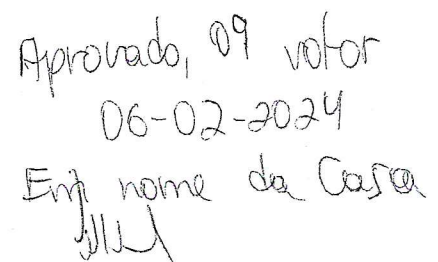 Aprovado, 09 votos
06-02-2024
Em nome da Casa